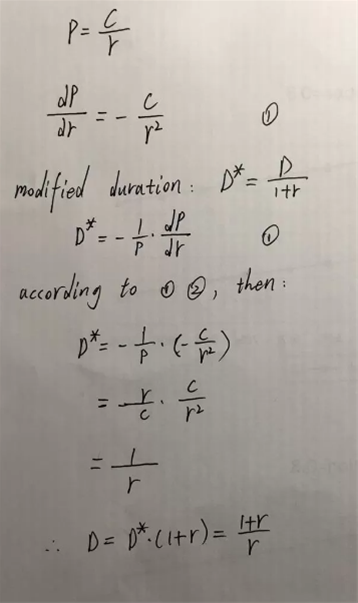 P = C/r
dP/dr = - C/r² ①
modified duration: D* = D/1+r
D* = - 1/P · dP/dr ①
according to ① ②, then:
D* = - 1/P · (- C/r²)
= r/C · C/r²
= 1/r
∴ D = D*·(1+r) = 1+r/r